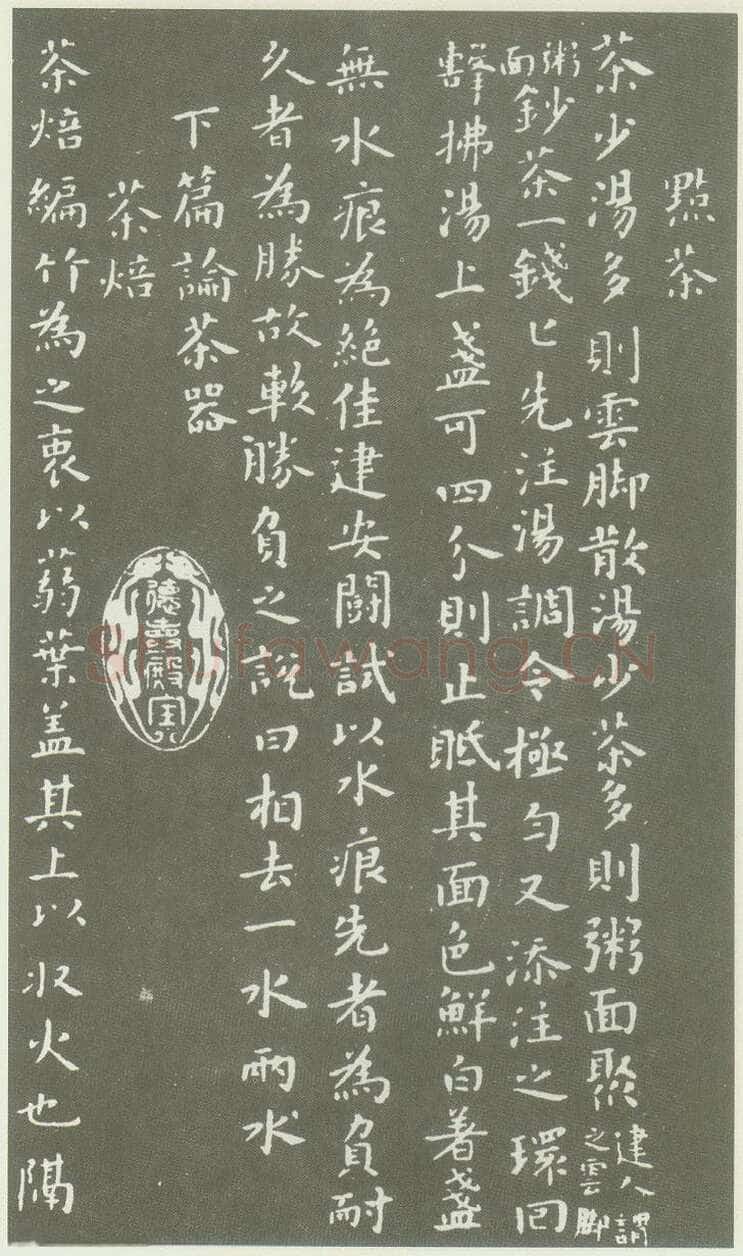 點茶
茶少湯多則雲脚散湯少茶多則粥面聚建人謂之雲脚
粥面鈔茶一錢匕先注湯調令極勻又添注之環回
擊拂湯上盞可四分則止眡其面色鮮白著盞
無水痕為絕佳建安闘試以水痕先者為負耐
久者為勝故較勝負之說曰相去一水兩水
下篇論茶器
茶焙
德壽殿寶
茶焙編竹為之裹以蒻葉盖其上以收火也隔
Shufawang.CN